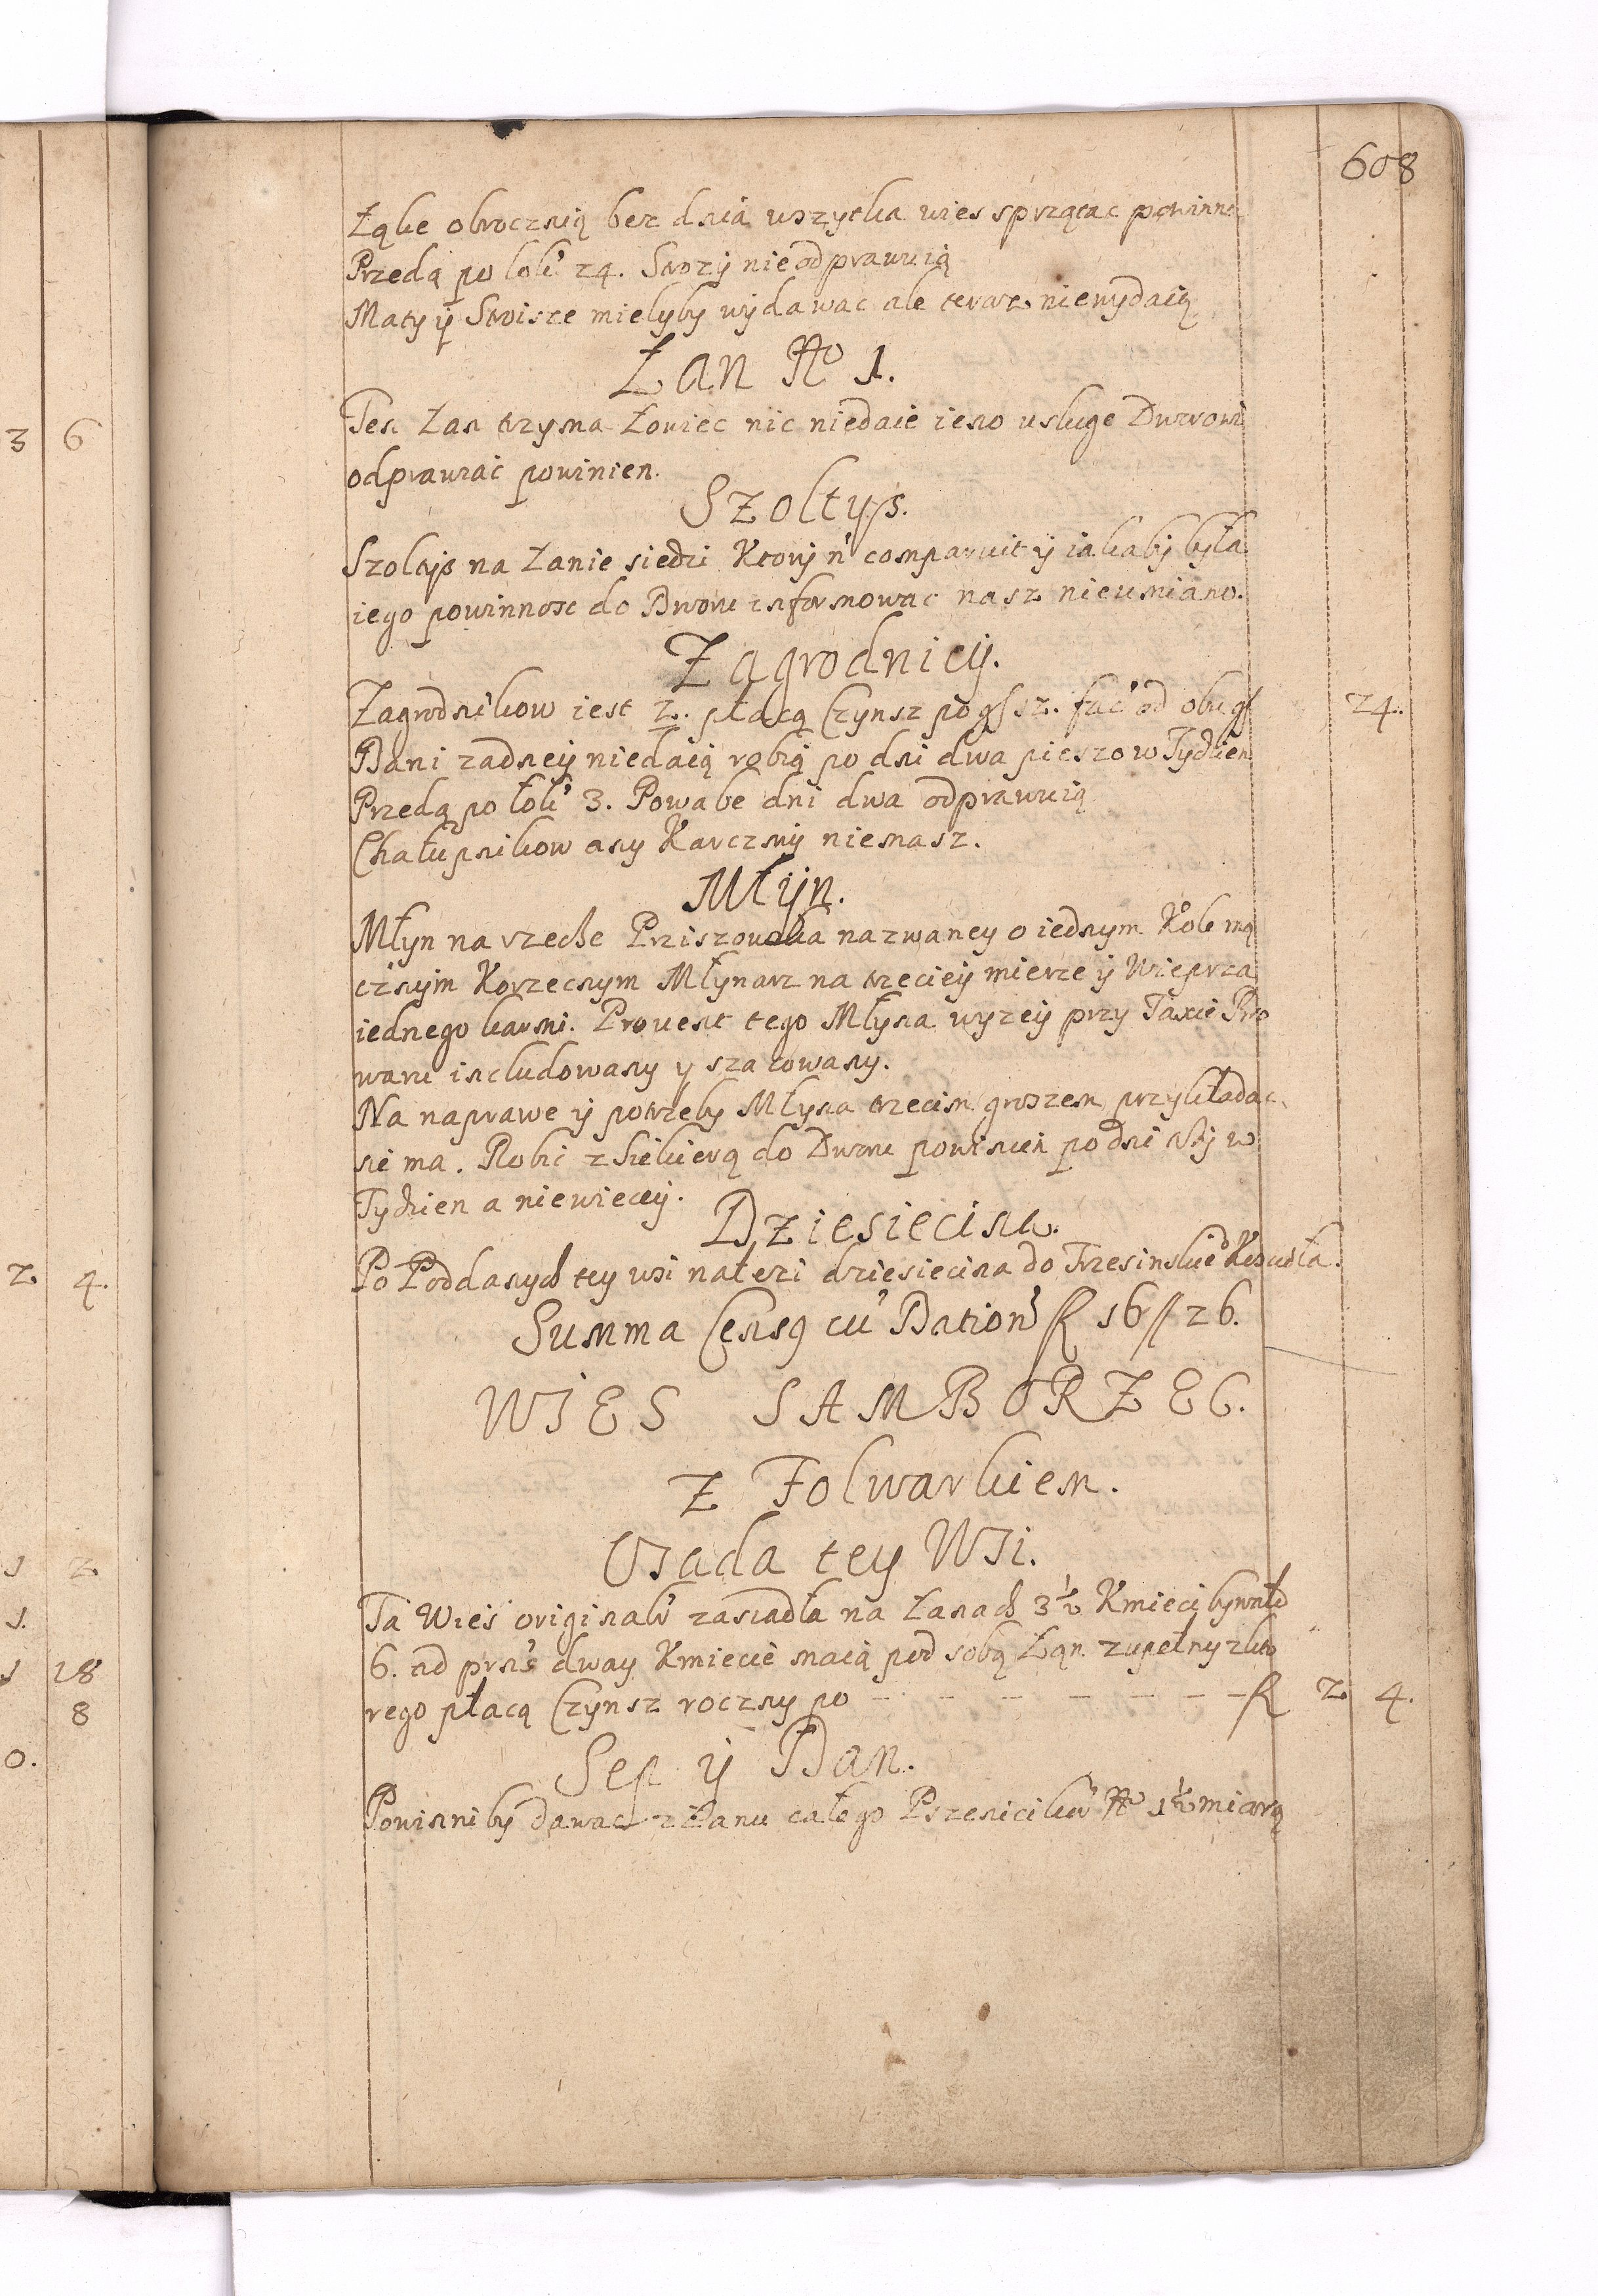 608
Łąke obroczną bez dnia wszytka wies sprzątac powinna
Przedą po łok' 24. Stroży nie odprawuią
Maty ÿ Stroisze mielyby wÿdawac ale teraz niewydaią
Łan No 1.
Ten Łan trzyma Łowiec nic niedaie ieno usługe Dworowi
odprawiać powinien.
Szoltyß.
Szoltyß na Łanie siedzi Ktorÿ n' comparuit ÿ iakabÿ była
iego powinnosc do Dworu informowac nasz nieumiano.
Zagrodnicÿ.
Zagrodników iest 2. płacą Czynsz po g 12. fac' od obug 24.
Dani zadneÿ niedaią robią po dni dwa pieszo w Tydzien
Przedą po łok' 3. Powabe dni dwa odprawuią
Chałupnikow any Karczmÿ niemasz.
Młÿn.
Młyn na rzeche Priszowka nazwaney o iednym Kole mą
cznÿm Korzecnym Młynarz na trzecieÿ mierze ÿ Wieprza
iednego karmi. Provent tego Młyna wyzeÿ przy Taxie Bro
waru includowany y szacowany.
Na naprawe ÿ potrzeby Młyna trzecim groszem przykładac
sie ma. Robic z Siekierą do Dworu powinien po dni trzÿ w
Tydzien a niewiecey.
Dziesiecina.
Po Poddanych tey wsi nałezi dziesiecina do Tresinskieº Koscioła.
Summa Censq cu' Dation' f 16 / 26.
WIES SAMBORZEC.
Z Folwarkiem.
Osada tey Wsi.
Ta Wieś original' zasiadła na Łanach 3 ½ Kmieci bywało
6. ad prns' dway Kmiecie maią pod sobą Łąn zupełny z kto
rego płacą Czÿnsz roczny po - - - - - - f 2 4.
Sep ÿ Dan.
Powinni bÿ dawac z Łanu całego Pszenici kor' No 1½ miarą
3 6
2. 4.
1 2
1.
1 18
8
0.